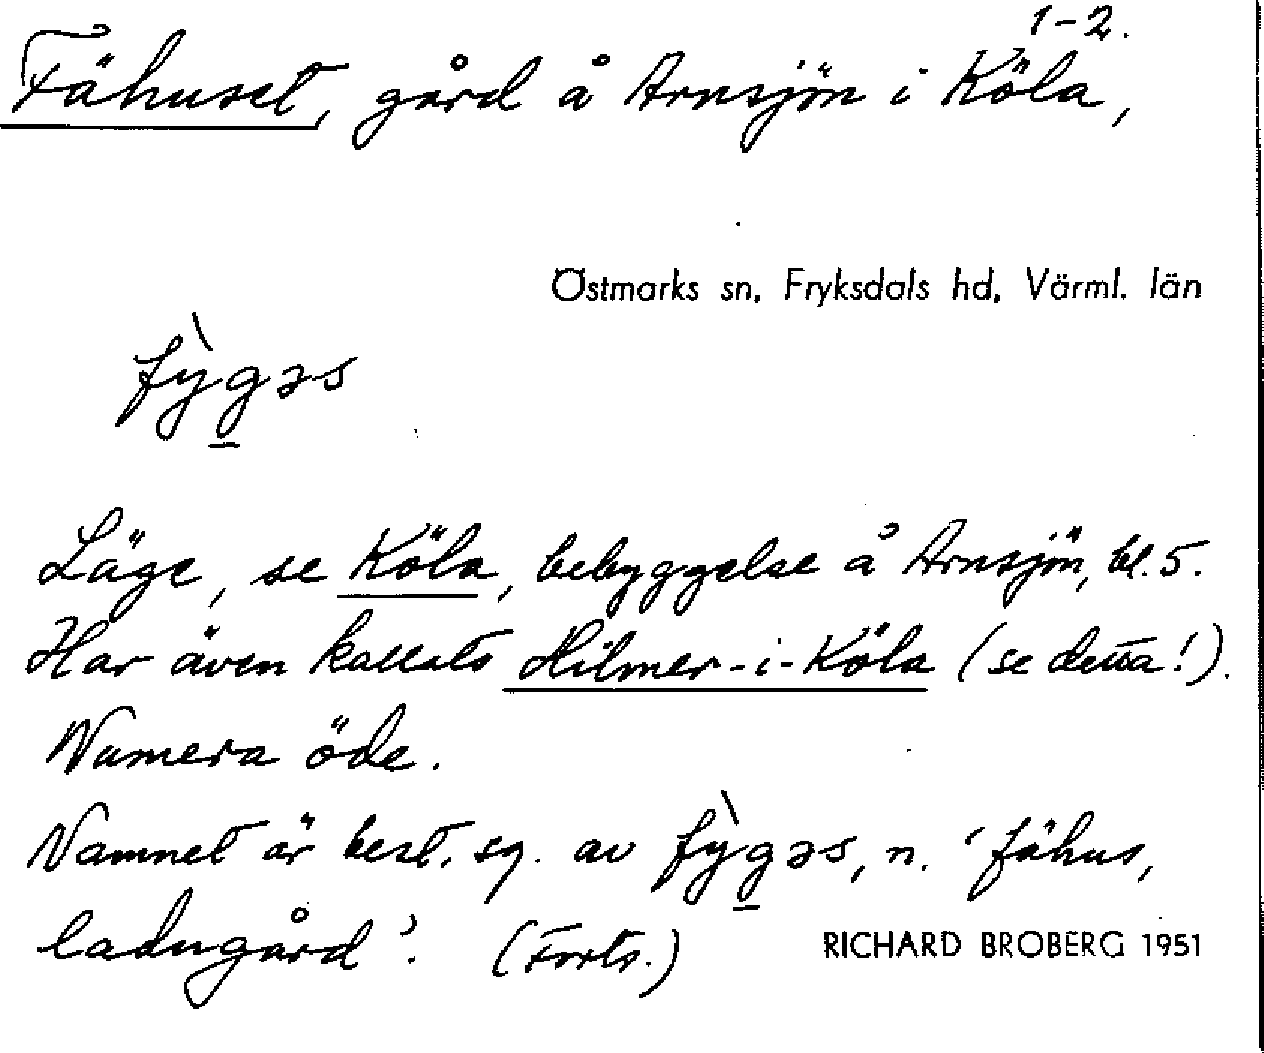 1-2.
Fähuset, gård å Arnsjön i Köla,
Östmarks sn, Fryksdals hd, Värml. län
fỳg̲əs
Läge, se Köla, bebyggelse å Arnsjön, bl. 5.
Har även kallats Hilmer-i-Köla (se detta!).
Numera öde.
Namnet är best. sg. av fỳg̲əs, n. 'fähus,
ladugård'. (Forts.)
RICHARD BROBERG 1951